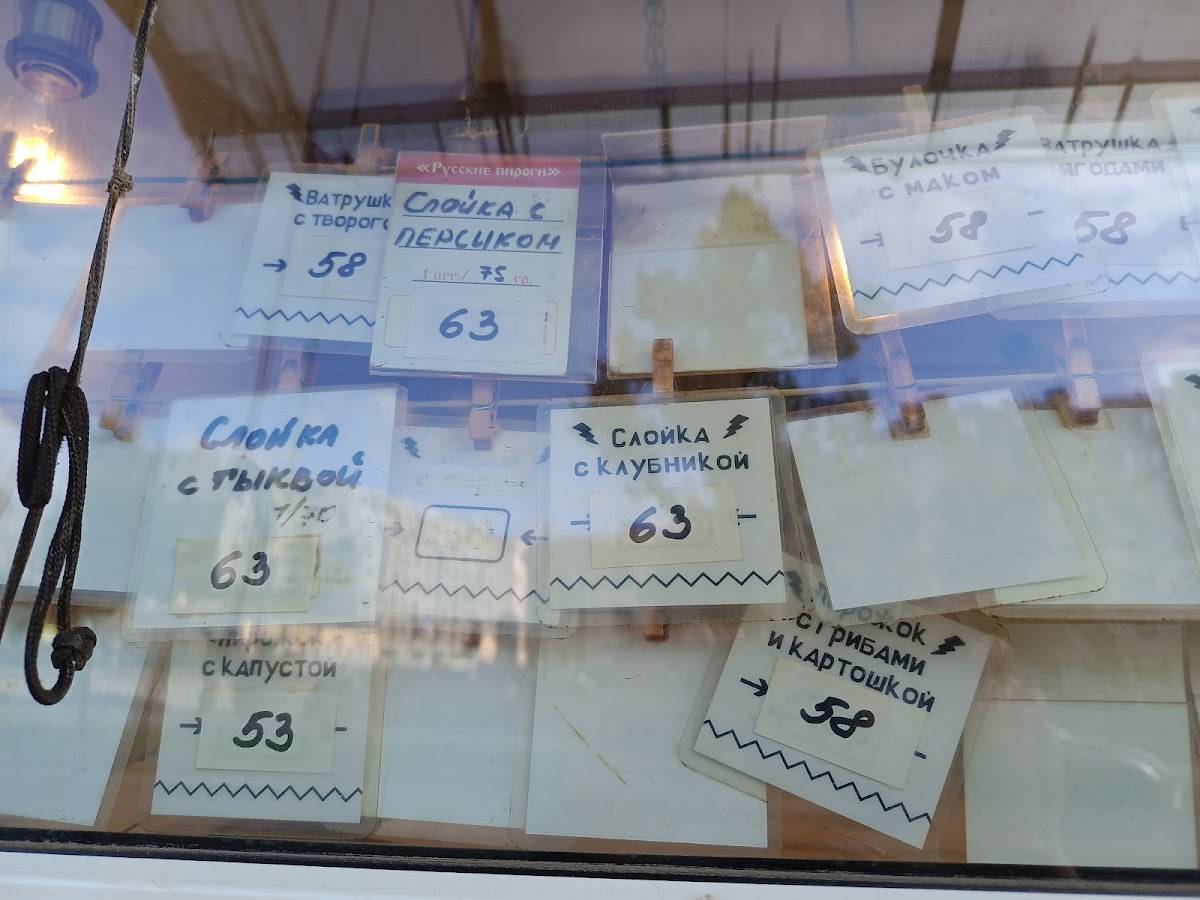 ВАТРУШК
С ТВОРОГО
58
«Русские пироги»
СЛОЙКА С
ПЕРСИКОМ
1 шт./ 75 гр.
63
БУЛОЧКА
С МАКОМ
58
ВАТРУШКА
ЯГОДАМИ
58
СЛОЙКА
С ТЫКВОЙ
1/70
63
СЛОЙКА
С КЛУБНИКОЙ
63
ПИРОЖОК
С КАПУСТОЙ
53
ПИРОЖОК
С ГРИБАМИ
И КАРТОШКОЙ
58